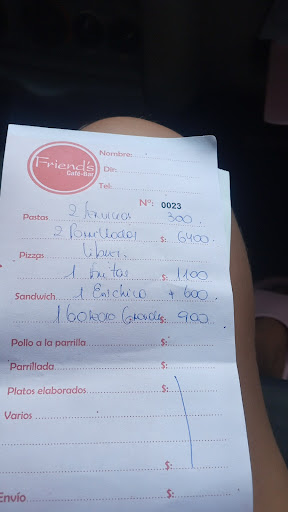 Friend's
Café-Bar
Nombre:
Dir:
Tel:
Nº: 0023
Pastas 2 300
2 Parrilladas $: 6400
Pizzas Libres.
1 $: 1100
Sandwich 1 + 600
1 Grande $: 900
Pollo a la parrilla $:
Parrillada $:
Platos elaborados $:
Varios $:
$:
Envío $: